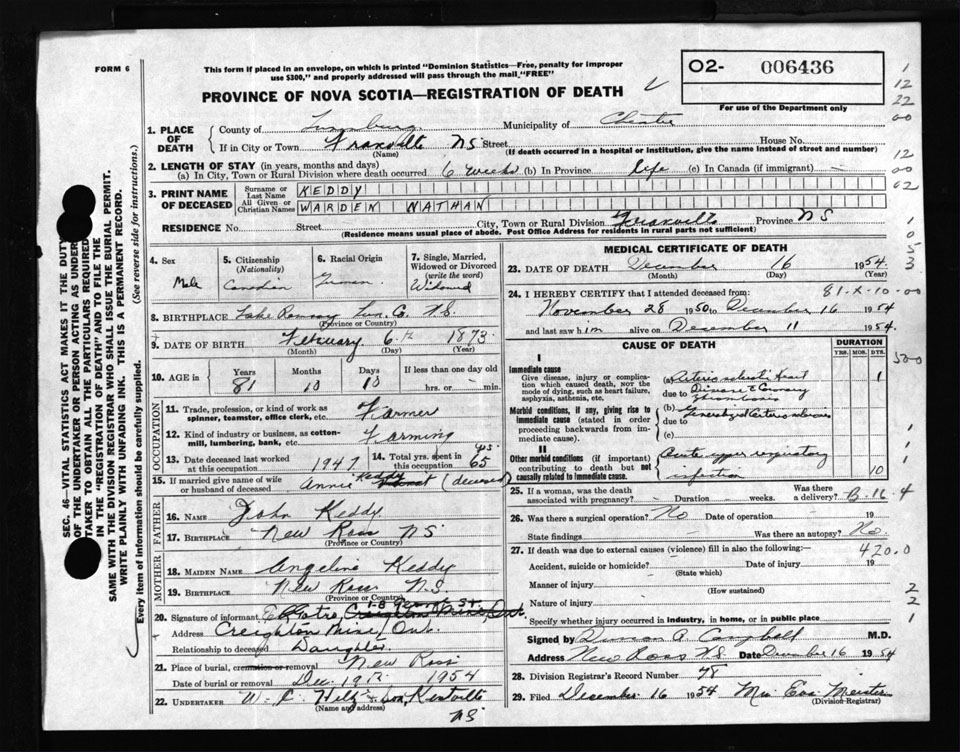 FORM 6
This form if placed in an envelope, on which is printed "Dominion Statistics—Free, penalty for improper
use $300," and properly addressed will pass through the mail "FREE"
O2- 006436
For use of the Department only
PROVINCE OF NOVA SCOTIA—REGISTRATION OF DEATH
1. PLACE OF DEATH
County of Lunenburg Municipality of Chester
If in City or Town NS Street House No.
(Name) (If death occurred in a hospital or institution, give the name instead of street and number)
2. LENGTH OF STAY (in years, months and days)
(a) In City, Town or Rural Division where death occurred 6 weeks (b) In Province life (c) In Canada (if immigrant) —
3. PRINT NAME OF DECEASED
Surname or Last Name KEDDY
All Given or Christian Names WARDEN NATHAN
RESIDENCE No. Street City, Town or Rural Division Province NS
(Residence means usual place of abode. Post Office Address for residents in rural parts not sufficient)
4. Sex Male
5. Citizenship (Nationality) Canadian
6. Racial Origin German
7. Single, Married, Widowed or Divorced (write the word) Widowed
8. BIRTHPLACE Lake Ramsay Lun. Co. N.S.
(Province or Country)
9. DATE OF BIRTH February 6th 1873
(Month) (Day) (Year)
10. AGE in Years 81 Months 10 Days 10 If less than one day old hrs. or min.
OCCUPATION
11. Trade, profession, or kind of work as spinner, teamster, office clerk, etc. Farmer
12. Kind of industry or business, as cotton-mill, lumbering, bank, etc. Farming
13. Date deceased last worked at this occupation 1947 14. Total yrs. spent in this occupation 65 yrs
15. If married give name of wife or husband of deceased Annie Keddy (deceased)
FATHER
16. NAME John Keddy
17. BIRTHPLACE New Ross NS
(Province or Country)
MOTHER
18. MAIDEN NAME Angeline Keddy
19. BIRTHPLACE New Ross N.S.
(Province or Country)
20. Signature of informant
Address Creighton Mine, Ont.
Relationship to deceased Daughter
21. Place of burial, cremation or removal New Ross
Date of burial or removal Dec. 19th 1954
22. UNDERTAKER Kentville
(Name and address) NS
MEDICAL CERTIFICATE OF DEATH
23. DATE OF DEATH December 16 1954.
(Month) (Day) (Year)
81-X-10-00
24. I HEREBY CERTIFY that I attended deceased from:
November 28 1950 to December 16 1954
and last saw him alive on December 11 1954.
CAUSE OF DEATH
DURATION
YRS. MOS. DYS.
I
Immediate cause
Give disease, injury or complication which caused death, NOT the mode of dying, such as heart failure, asphyxia, asthenia, etc.
(a) Arteriosclerotic Heart
due to Disease & Coronary
Thrombosis 1
Morbid conditions, if any, giving rise to immediate cause (stated in order proceeding backwards from immediate cause).
(b) Generalized Arteriosclerosis
due to
(c)
II
Other morbid conditions (if important) contributing to death but not causally related to immediate cause.
Acute upper respiratory
infection 10
25. If a woman, was the death associated with pregnancy? Duration weeks. Was there a delivery?
B-16-4
26. Was there a surgical operation? No Date of operation 19
State findings Was there an autopsy? No.
27. If death was due to external causes (violence) fill in also the following:—
420.0
Accident, suicide or homicide? Date of injury 19
(State which)
Manner of injury
(How sustained)
Nature of injury
Specify whether injury occurred in industry, in home, or in public place
Signed by Duncan A. Campbell M.D.
Address New Ross N.S. Date December 16 1954
28. Division Registrar's Record Number 78
29. Filed December 16 1954 Mrs. Eva Meister
(Division Registrar)
SEC. 46—VITAL STATISTICS ACT MAKES IT THE DUTY
OF THE UNDERTAKER OR PERSON ACTING AS UNDERTAKER TO OBTAIN ALL THE PARTICULARS REQUIRED
IN THE "REGISTRATION OF DEATH" AND TO FILE THE
SAME WITH THE DIVISION REGISTRAR WHO SHALL ISSUE THE BURIAL PERMIT.
WRITE PLAINLY WITH UNFADING INK. THIS IS A PERMANENT RECORD.
Every item of information should be carefully supplied. (See reverse side for instructions.)
1
12
22
00
12
00
02
1
0
5
3
500
1
1
2
2
1